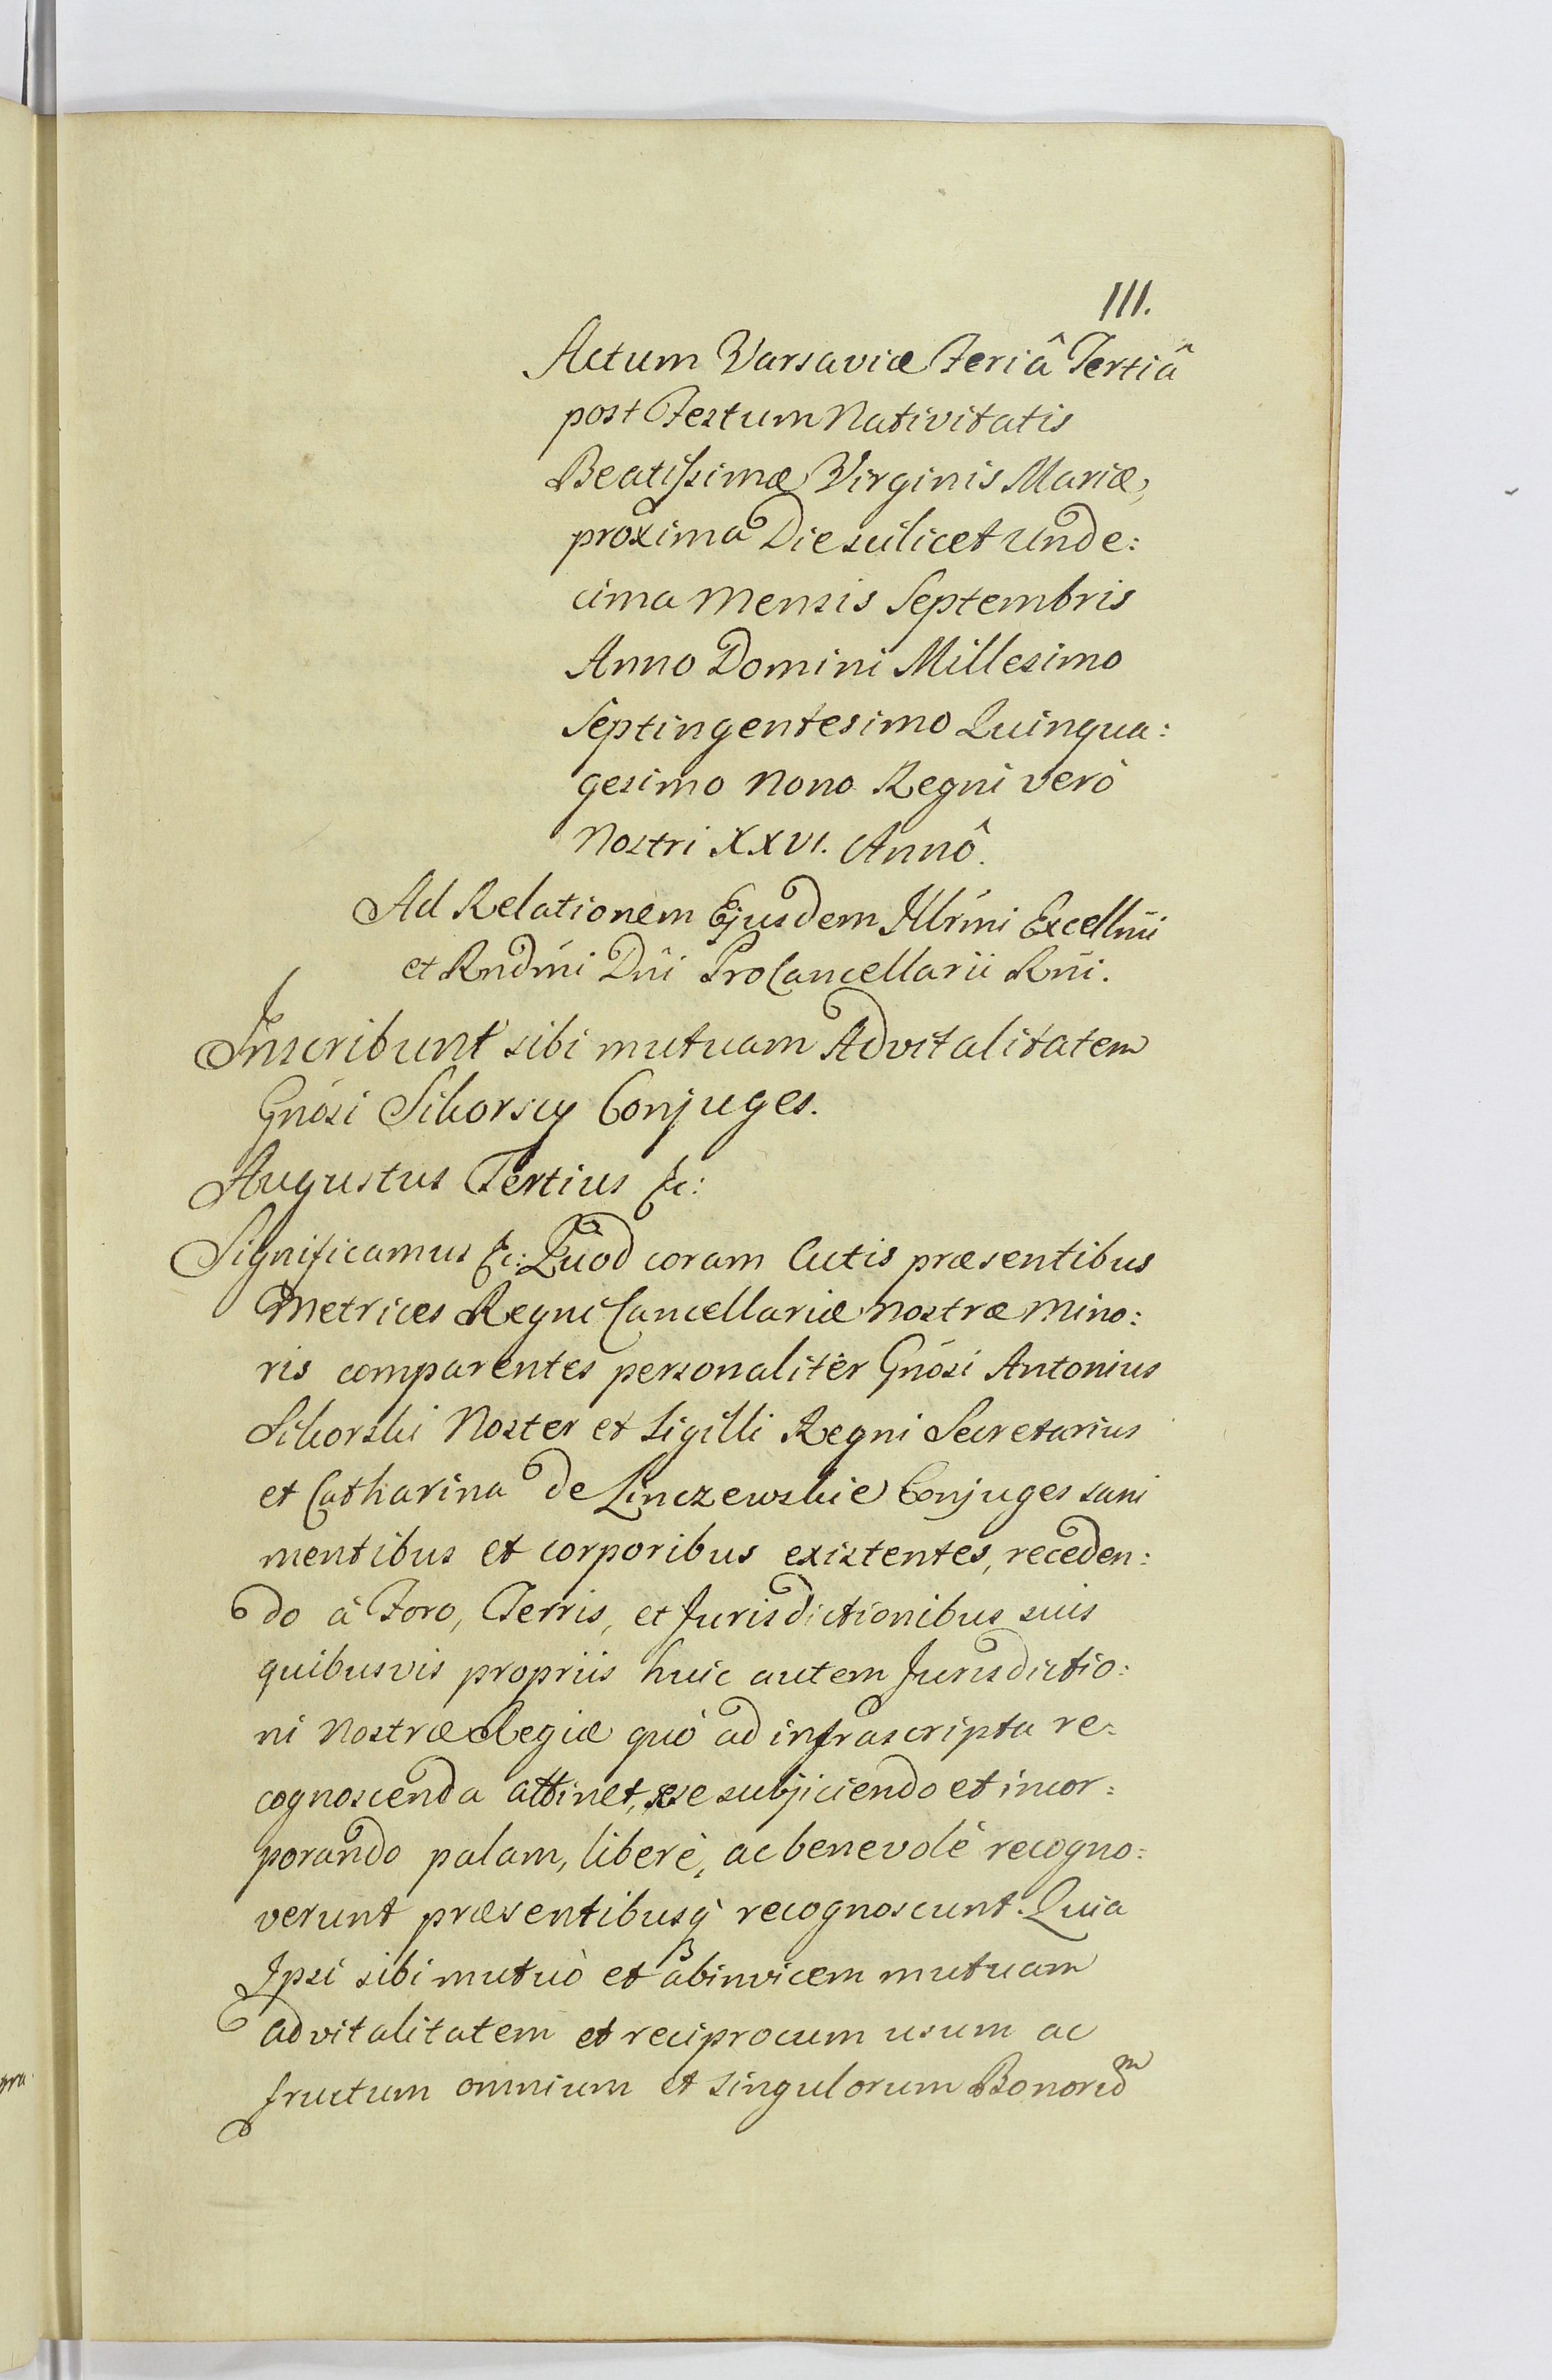 III.
Actum Varsaviæ Feriâ Tertiâ
post Festum Nativitatis
Beatissimæ Virginis Mariæ,
proxima Die scilicet Unde:
cima Mensis Septembris
Anno Domini Millesimo
Septingentesimo Quinqua:
gesimo Nono Regni verò
Nostri XXVI. Annô.
Ad Relationem Ejusdem Illrmi Excellmi
et Rndmi Dni ProCancellarii Rni.
Inscribunt sibi mutuam Advitalitatem
Gnosi Sikorscy Conjuges.
Augustus Tertius &c:
Significamus &c: Quod coram Actis præsentibus
Metrices Regni Cancellariæ Nostræ Mino:
ris comparentes personalitèr Gnosi Antonius
Sikorski Noster et Sigilli Regni Secretarius
et Catharina de Linczewskie Conjuges sani
mentibus et corporibus existentes, receden:
do à Foro, Terris, et Jurisdictionibus suis
quibusvis propriis huic autem Jurisdictio:
ni Nostræ Regiæ quò ad infrascripta re:
cognoscenda attinet, se subjiciendo et incor:
porando palam, liberè, ac benevolè recogno:
verunt præsentibusq recognoscunt. Quia
Ipsi sibi mutuò et abinvicem mutuam
advitalitatem et reciprocum usum ac
fructum omnium et singulorum Bonorum